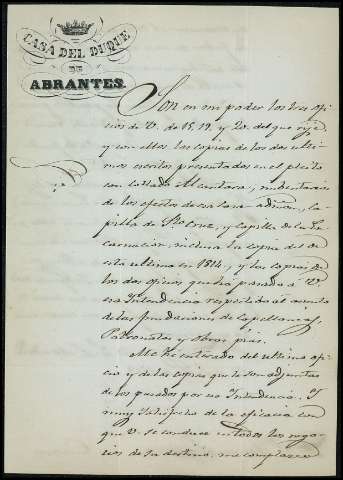 CASA DEL DUQUE
DE
ABRANTES.
Son en mi poder los tres ofi-
cios de V. de 15, 19, y 20. del que rije,
y con ellos las copias de los dos ulti-
mos escritos presentados en el pleito
con Alcantara, inbentario
de los efectos de esa casa admon, Ca-
pilla de Sto Cruz, y Capilla de la En-
carnacion, inclusa la copia del
ultimo en 1814, y las copias de
los dos oficios que ha pasado á V.
esa Intendencia respectibo al asunto
de las fundaciones de Capellanias,
Patronatos y obras pias.
Me he enterado del ultimo ofi-
cio y de las copias que le son adjuntas
de los pasados por esa Intendencia. Y
muy satisfecho de la eficacia con
que V. se conduce en todos los nego-
cios de su destino, me complazco